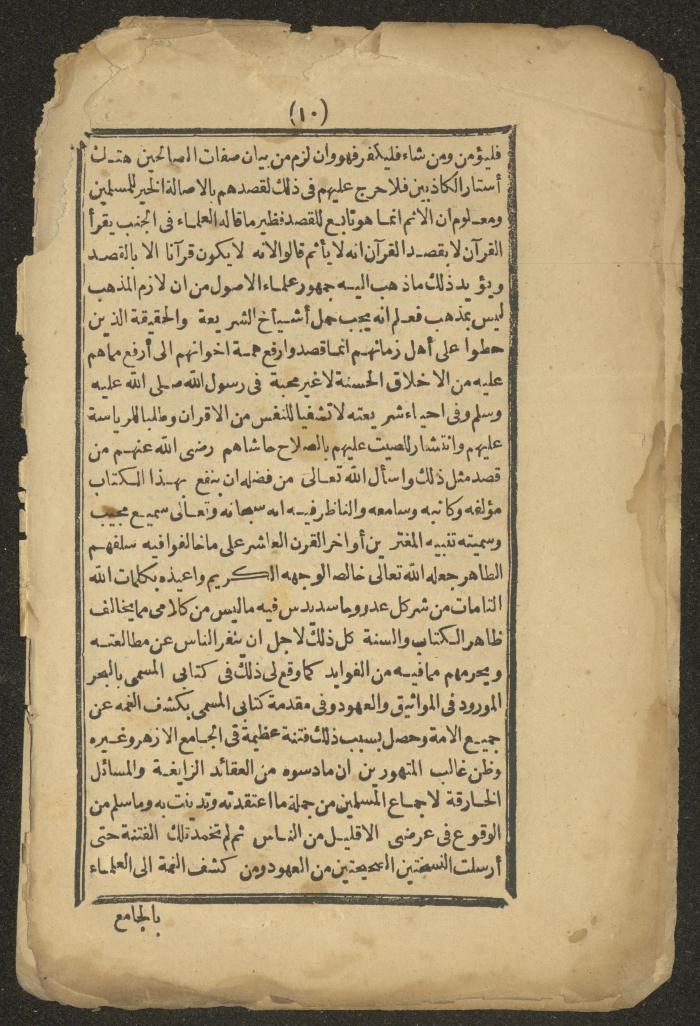 (١٠)
فليؤمن ومن شاء فليكفر فهو وان لزم من بيان صفات الصالحين هتك
أستار الكاذبين فلا حرج عليهم فى ذلك لقصدهم بالاصالة الخير للمسلمين
ومعلوم ان الاثم انما هو تابع للقصد فنظير ما قاله العلماء فى الجنب يقرأ
القرآن لا بقصد القرآن انه لا يأثم قالوا لانه لا يكون قرآنا الا بالقصد
ويؤيد ذلك ما ذهب اليه جمهور علماء الاصول من ان لازم المذهب
ليس بمذهب فعلم انه يجب حمل أشياخ الشريعة والحقيقة الذين
حطوا على أهل زمانهم انما قصدوا رفع همة اخوانهم الى أرفع مما هم
عليه من الاخلاق الحسنة لا غير محبة فى رسول الله صلى الله عليه
وسلم وفى احياء شريعته لا تشفيا للنفس من الاقران وطلبا للرياسة
عليهم وانتشار الصيت عليهم بالصلاح حاشاهم رضى الله عنهم من
قصد مثل ذلك واسأل الله تعالى من فضله ان ينفع بهذا الكتاب
مؤلفه وكاتبه وسامعه والناظر فيه انه سبحانه وتعالى سميع مجيب
وسميته تنبيه المغترين أواخر القرن العاشر على ما خالفوا فيه سلفهم
الطاهر جعله الله تعالى خالصا لوجهه الكريم واعيذه بكلمات الله
التامات من شر كل عدو وحاسد يدس فيه ما ليس من كلامى مما يخالف
ظاهر الكتاب والسنة كل ذلك لاجل ان ينفر الناس عن مطالعته
ويحرمهم مما فيه من الفوايد كما وقع لى ذلك فى كتابى المسمى بالبحر
المورود فى المواثيق والعهود وفى مقدمة كتابى المسمى بكشف الغمه عن
جميع الامة وحصل بسبب ذلك فتنة عظيمة فى الجامع الازهر وغيره
وظن غالب المتهورين ان ما دسوه من العقائد الزايغة والمسائل
الخارقة لاجماع المسلمين من جملة ما اعتقدته وتدينت به وما سلم من
الوقوع فى عرضى الا قليل من الناس ثم لم تخمد تلك الفتنة حتى
أرسلت النسختين الصحيحتين من العهود ومن كشف الغمة الى العلماء
بالجامع